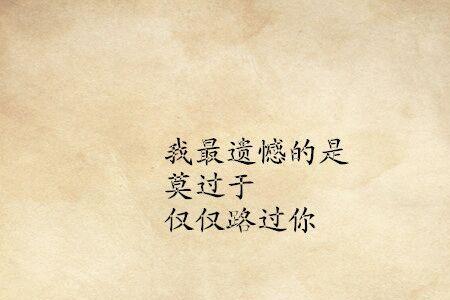 我最遗憾的是
莫过于
仅仅路过你